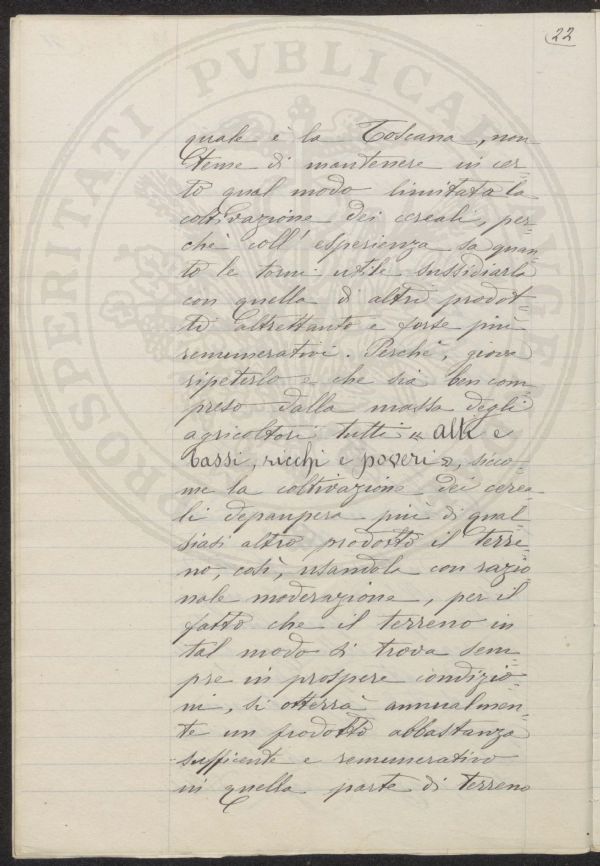 22
quale è la Toscana, non
teme di mantenere in cer=
to qual modo limitata la
coltivazione dei cereali, per=
chè coll' esperienza sa quan=
to le torni utile sussidiarla
con quella di altri prodot=
ti altrettanto e forse più
remunerativi. Perchè, giova
ripeterlo e che sia ben com=
preso dalla massa degli
agricoltori tutti "alti e
bassi, ricchi e poveri", sicco=
me la coltivazione dei cerea=
li depaupera più di qual=
siasi altro prodotto il terre=
no, così, usandola con razio=
nale moderazione, per il
fatto che il terreno in
tal modo si trova sem=
pre in prospere condizio=
ni, si otterrà annualmen=
te un prodotto abbastanza
sufficente e remunerativo
in quella parte di terreno
PROSPERITATI PVBLICAE AVGENDAE